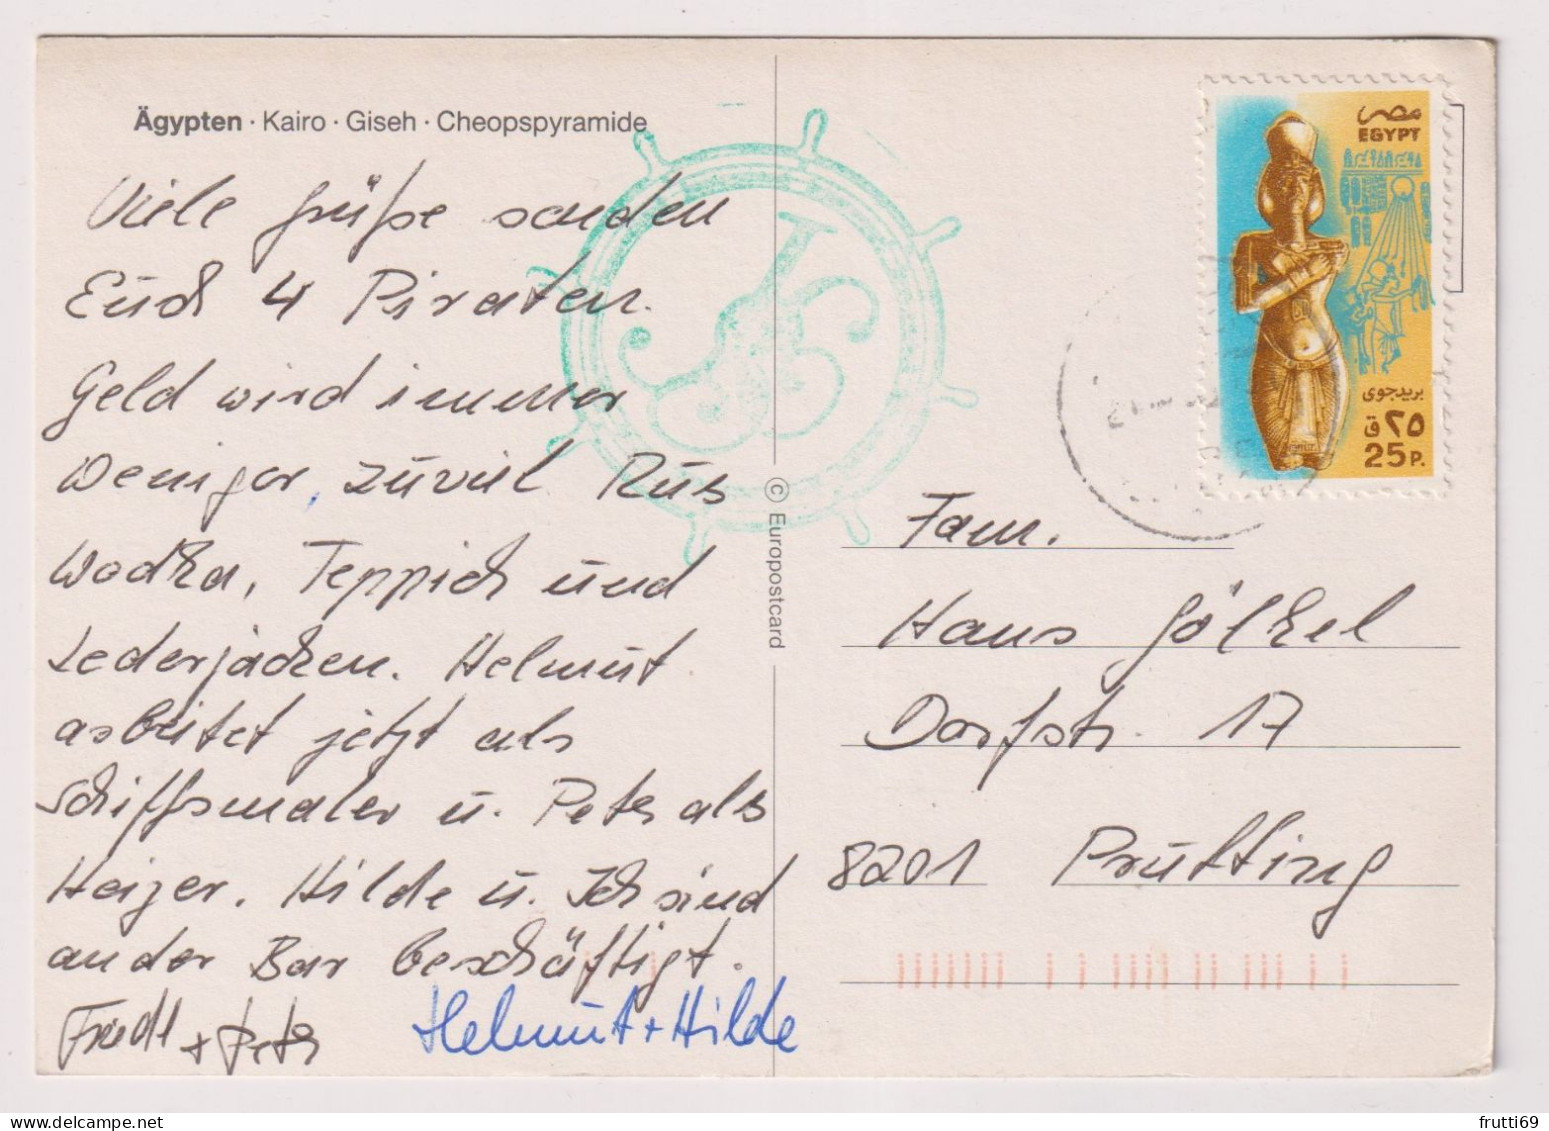 Ägypten · Kairo · Giseh · Cheopspyramide
Viele Grüße senden
Euch 4 Piraten.
Geld wird immer
weniger, zuviel Rus
Wodka, Teppich und
Lederjacken. Helmut
arbeitet jetzt als
Schiffsmaler u. Peter als
Heizer. Hilde u. Ich sind
an der Bar beschäftigt.
Friedl + Peter
Helmut + Hilde
© Europostcard
مصر
EGYPT
بريد جوى
٢٥ ق
25 P.
Fam.
Hans Gölkel
Dorfstr. 17
8201 Prutting
frutti69